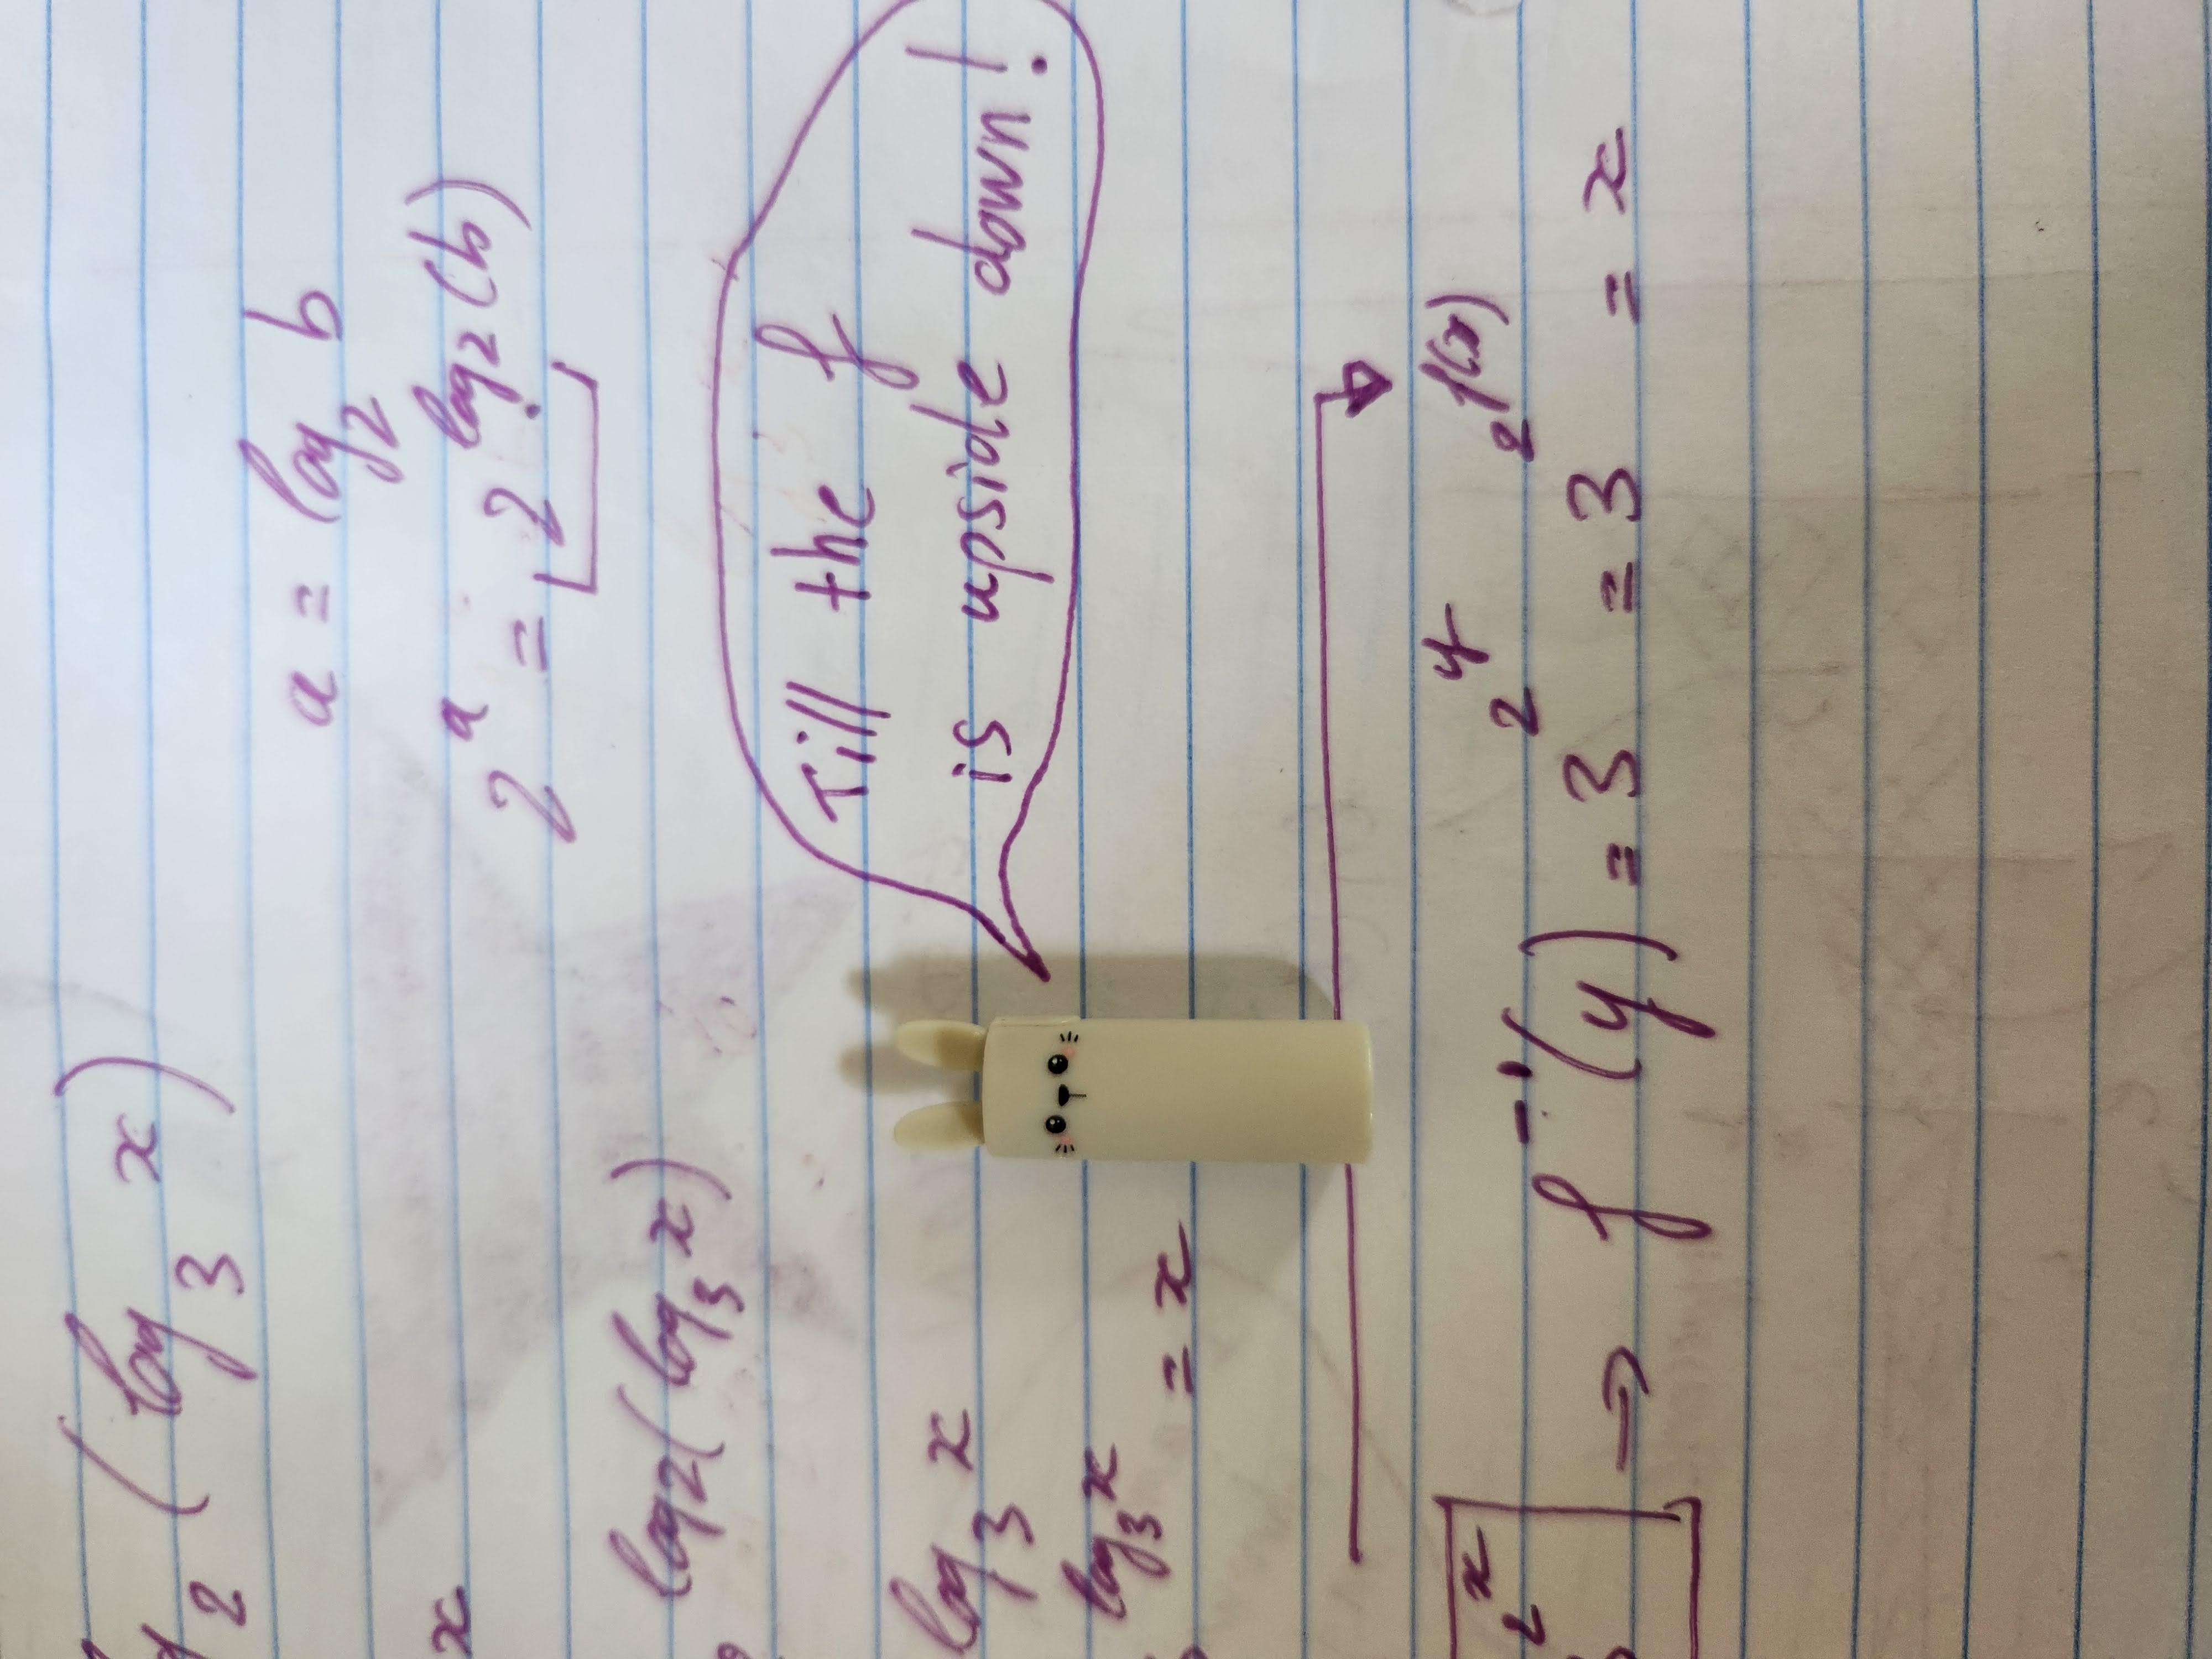 2 (log₃ x)
a = log₂ b
x
2^a = 2^log₂(b)
log2(log₃ x)
Till the f
is upside down!
log₃ x
log₃ x = x
2^x → f⁻¹(y) = 3^2^y = 3^2^f(x) = x